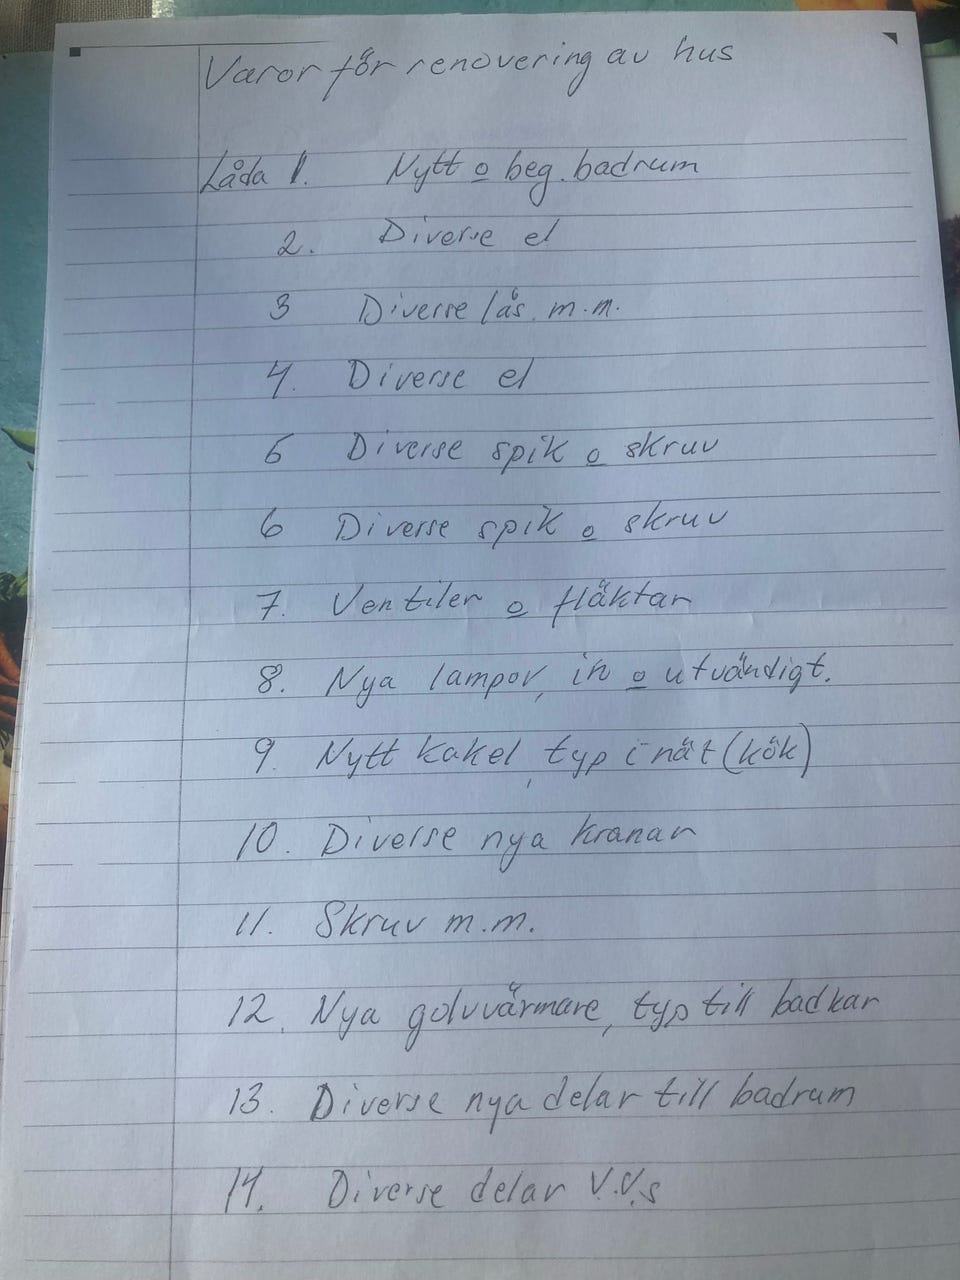 Varor för renovering av hus
Låda 1. Nytt o beg. badrum
2. Diverse el
3 Diverse lås m.m.
4. Diverse el
5 Diverse spik o skruv
6 Diverse spik o skruv
7. Ventiler o fläktar
8. Nya lampor, in o utvändigt.
9. Nytt kakel, typ i nät (kök)
10. Diverse nya kranar
11. Skruv m.m.
12. Nya golvvärmare, typ till badkar
13. Diverse nya delar till badrum
14. Diverse delar V.V.s